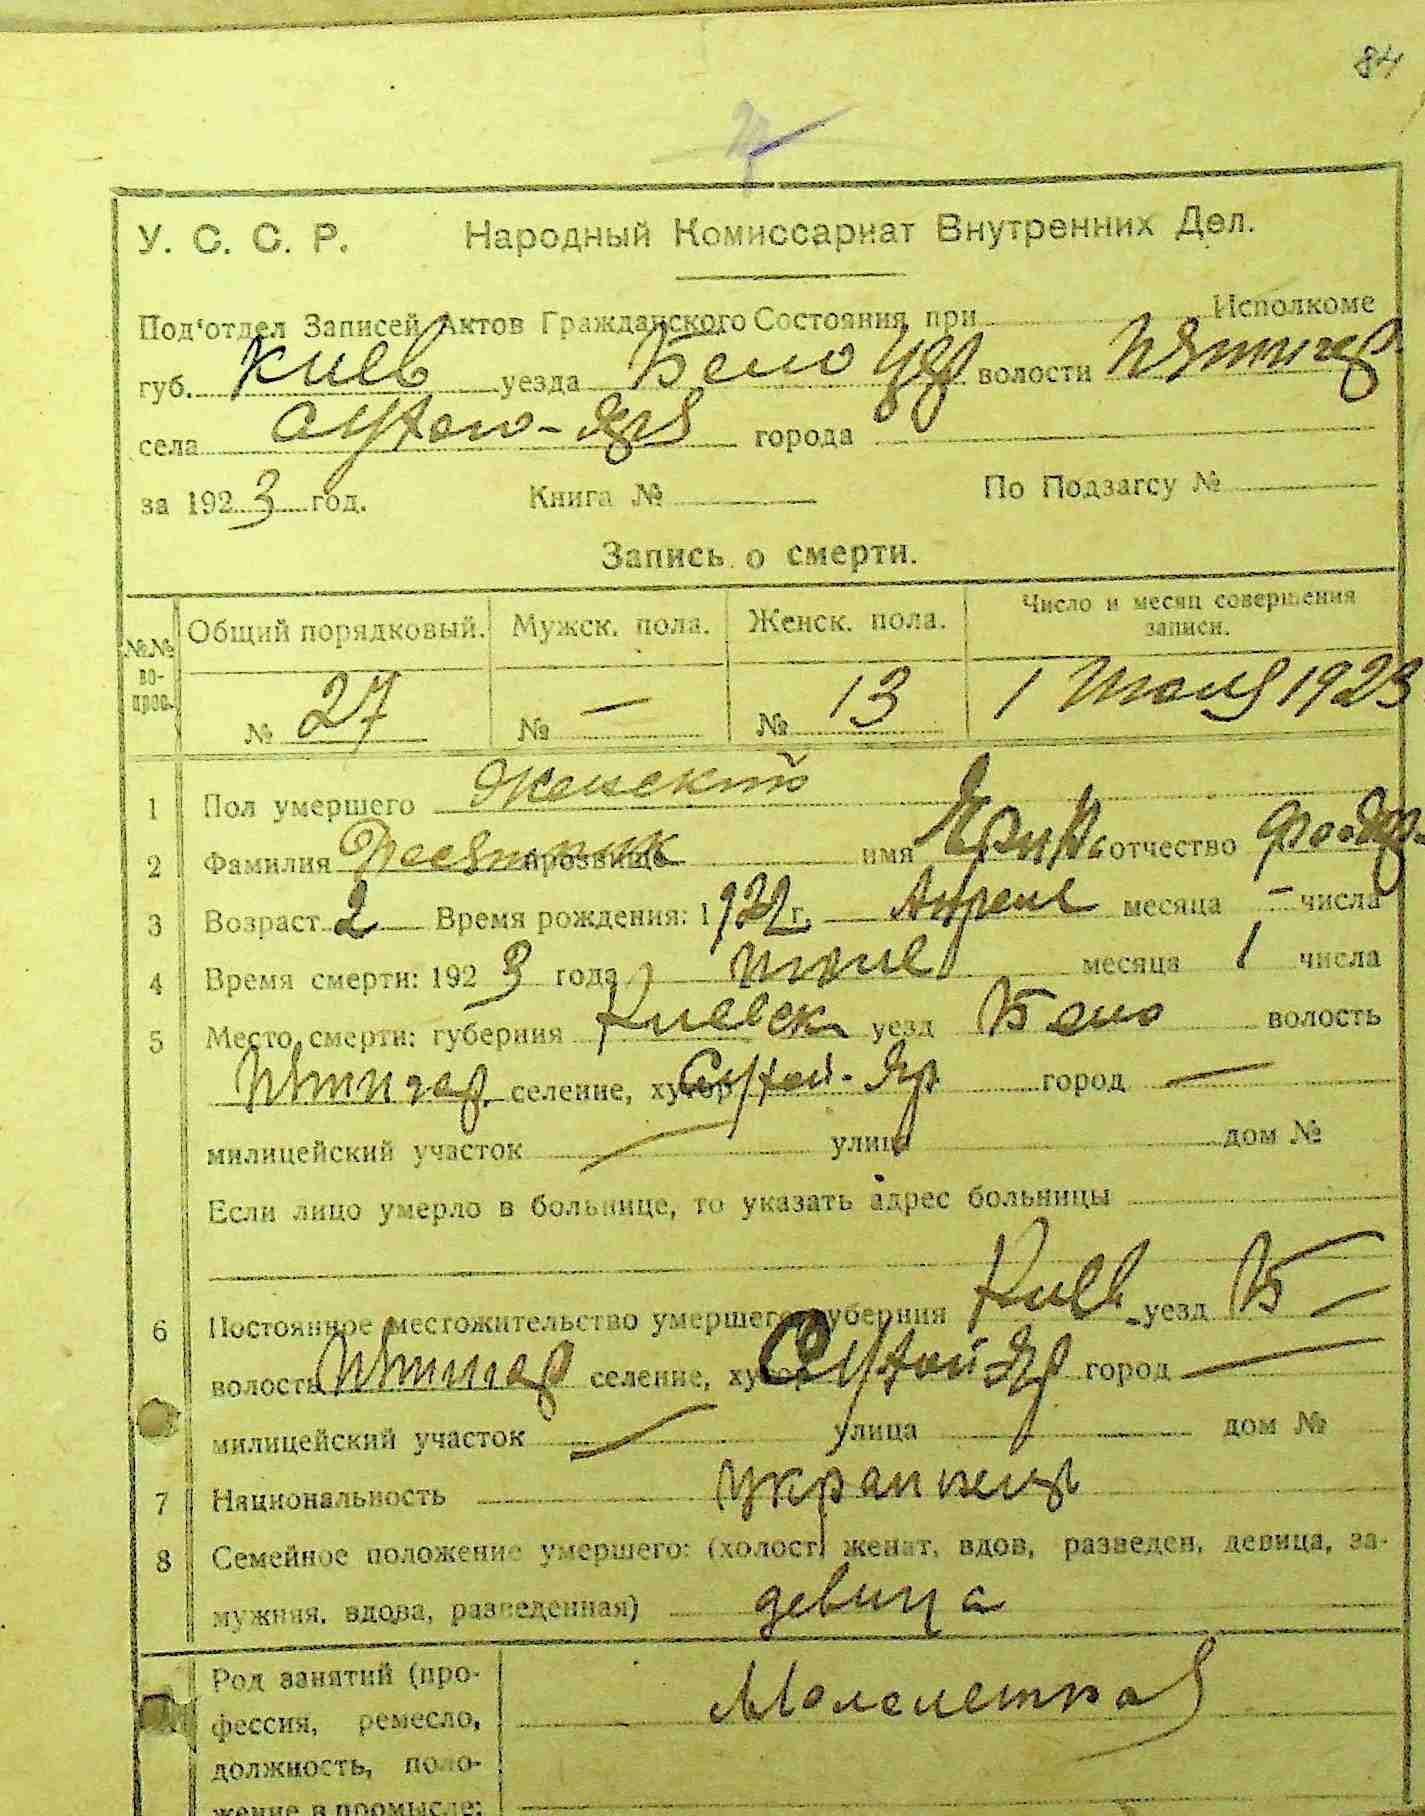 84
У. С. С. Р. Народный Комиссариат Внутренних Дел.
Под'отдел Записей Актов Гражданского Состояния при Исполкоме
губ. Киев уезда Бело Цер волости Пятигор
села Сухого-Яра города
за 1923 год. Книга № По Подзагсу №
Запись о смерти.
№№ вопрос. Общий порядковый. Мужск. пола. Женск. пола. Число и месяц совершения записи.
№ 27 № — № 13 1 Июля 1923
1 Пол умершего Женский
2 Фамилия прозвище имя отчество
3 Возраст 2 Время рождения: 192 г. Апреля месяца — числа
4 Время смерти: 1923 года месяца 1 числа
5 Место смерти: губерния Киевск уезд Бело волость
Пятигор. селение, хутор Сухой-Яр город —
милицейский участок — улица дом №
Если лицо умерло в больнице, то указать адрес больницы
6 Постоянное местожительство умершего: губерния Киев уезд Б —
волость Пятигор селение, хутор Сухой-Яр город —
милицейский участок — улица дом №
7 Национальность
8 Семейное положение умершего: (холост, женат, вдов, разведен, девица, за-
мужняя, вдова, разведенная) девица
Род занятий (про-
фессия, ремесло, Малолетняя
должность, поло-
жение в промысле: